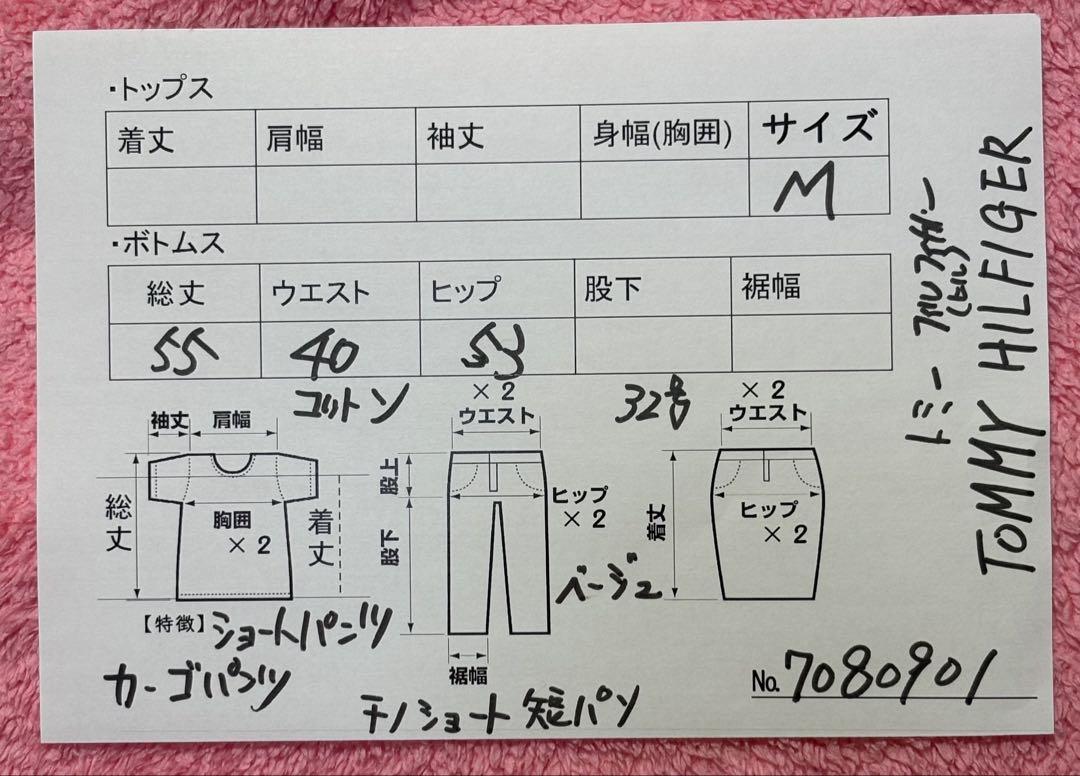 ・トップス
着丈 肩幅 袖丈 身幅(胸囲) サイズ
M
・ボトムス
総丈 ウエスト ヒップ 股下 裾幅
55 40 53
コットン
32号
袖丈 肩幅
総丈
胸囲
×2
着丈
×2
ウエスト
股上
股下
ヒップ
×2
裾幅
×2
ウエスト
着丈
ヒップ
×2
ベージュ
【特徴】ショートパンツ
カーゴパンツ
チノショート 短パン
No.7080901
トミー
TOMMY HILFIGER